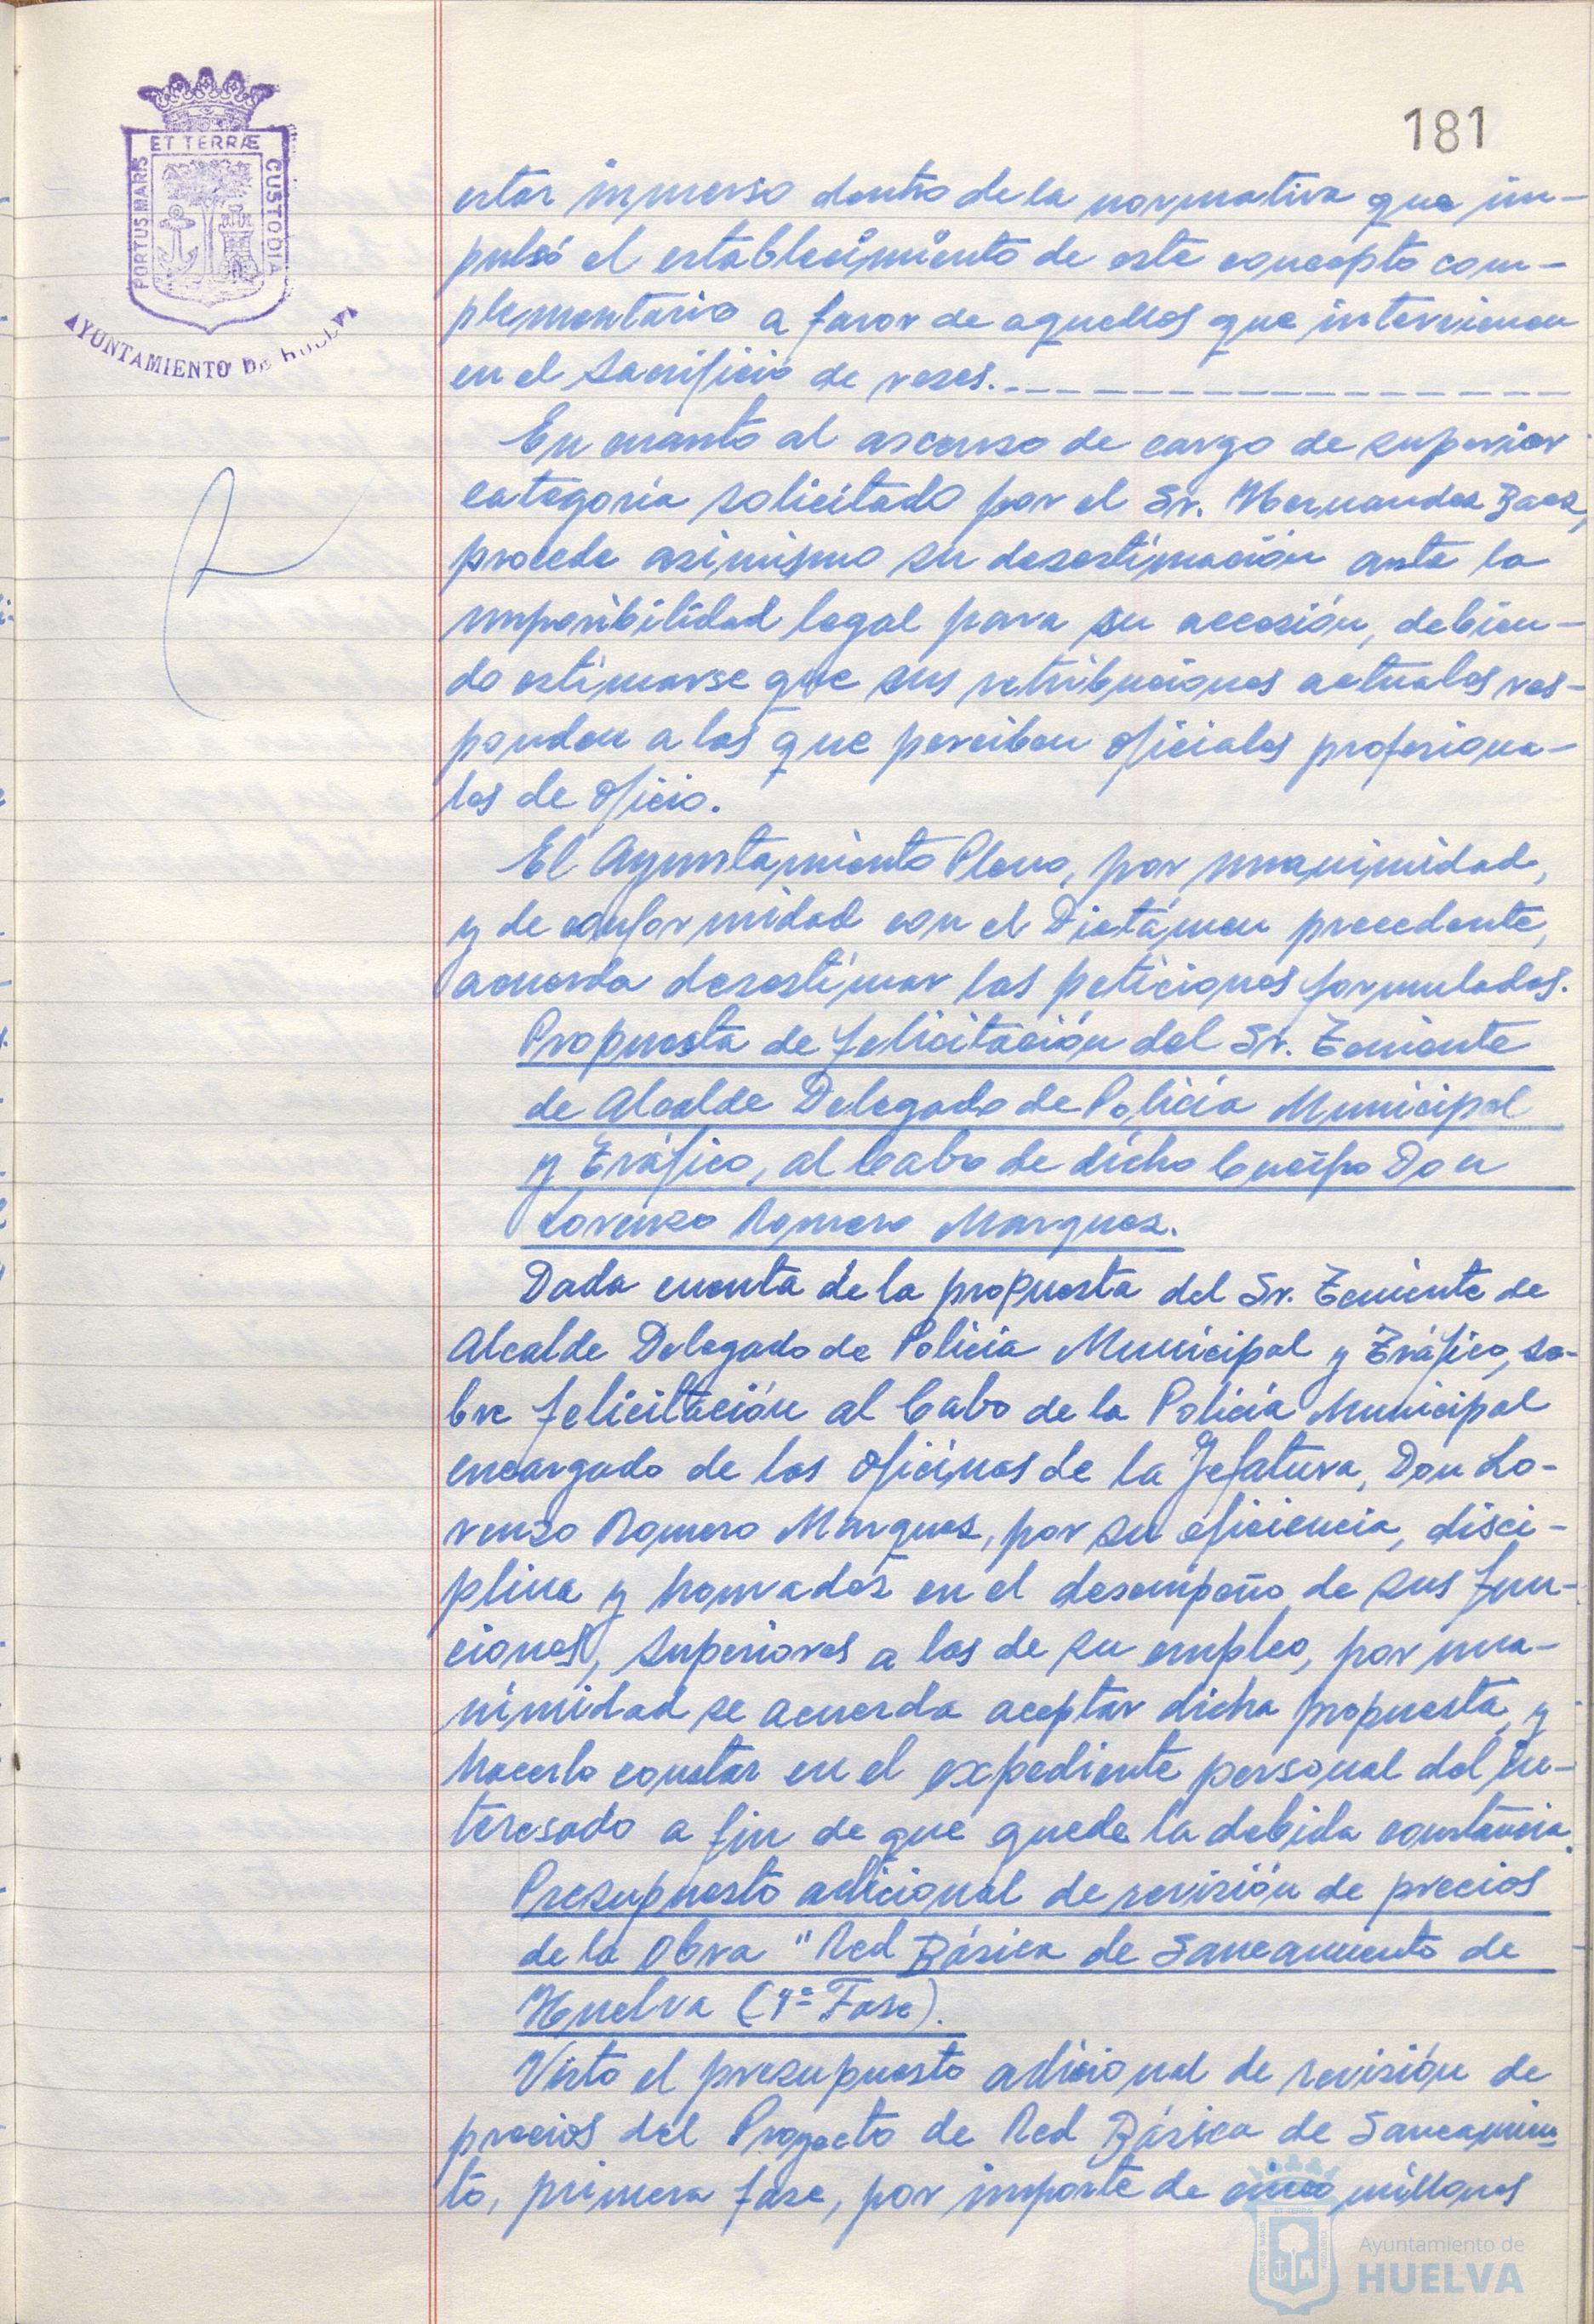 181
ET TERRÆ
PORTUS MARIS
CUSTODIA
AYUNTAMIENTO DE HUELVA
estar inmerso dentro de la normativa que im-
pulsó el establecimiento de este concepto com-
plementario a favor de aquellos que intervienen
en el sacrificio de reses.
En cuanto al ascenso de cargo de superior
categoría solicitado por el Sr. Hernandez Baez,
procede asimismo su desestimación ante la
imposibilidad legal para su accesión, debien-
do estimarse que sus retribuciones actuales res-
ponden a las que perciben oficiales profesiona-
les de oficio.
El Ayuntamiento Pleno, por unanimidad,
y de conformidad con el Dictámen precedente,
acuerda desestimar las peticiones formuladas.
Propuesta de felicitación del Sr. Teniente
de Alcalde Delegado de Policía Municipal
y Tráfico, al Cabo de dicho Cuerpo Don
Lorenzo Romero Marquez.
Dada cuenta de la propuesta del Sr. Teniente de
Alcalde Delegado de Policia Municipal y Tráfico, so-
bre felicitación al Cabo de la Policía Municipal
encargado de las Oficinas de la Jefatura, Don Lo-
renzo Romero Marquez, por su eficiencia, disci-
plina y honradez en el desempeño de sus fun-
ciones, superiores a las de su empleo, por una-
nimidad se acuerda aceptar dicha propuesta, y
hacerlo constar en el expediente personal del in-
teresado a fin de que quede la debida constancia.
Presupuesto adicional de revisión de precios
de la Obra "Red Básica de Saneamiento de
Huelva (1ª Fase).
Visto el presupuesto adicional de revisión de
precios del Proyecto de Red Básica de Saneamien-
to, primera fase, por importe de cinco millones
Ayuntamiento de
HUELVA